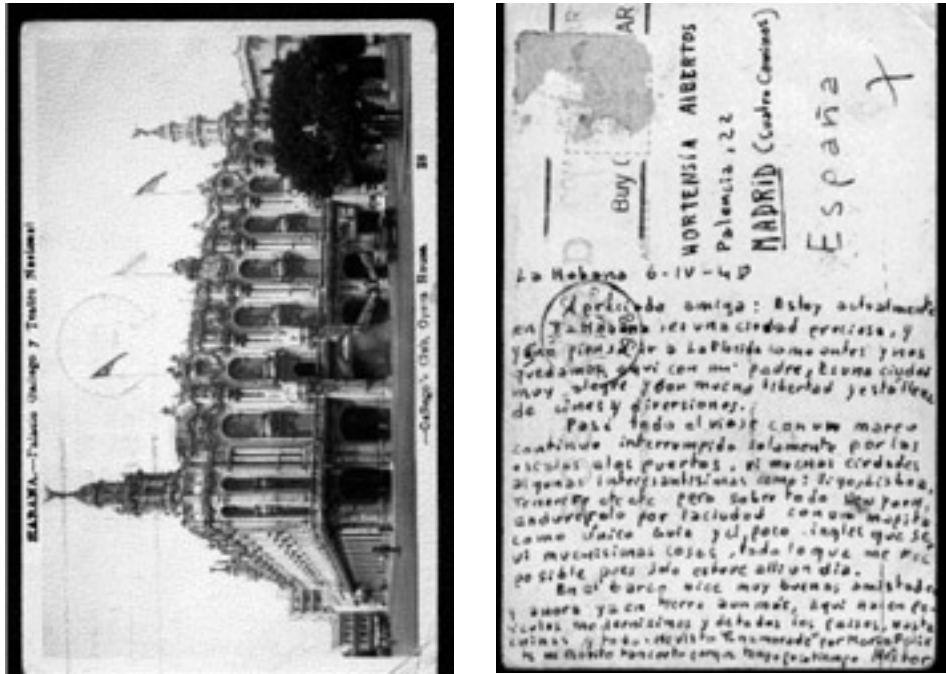 HABANA.—Palacio Gallego y Teatro Nacional
—Gallego's Club, Opera House
28
AR
Buy
HORTENSIA AIBERTOS
Palencia, 22
MADRID (Cuatro Caminos)
España
La Habana 6-IV-4
Apreciada amiga: Estoy actualmente
en La Habana, es una ciudad preciosa, y
ya no pienso ir a La Florida como antes y nos
quedamos aquí con mi padre, Es una ciudad
muy alegre y con mucha libertad y
de cines y diversiones.
Pasé todo el viaje con un mareo
continuo interrumpido solamente por las
escalas a los puertos, vi muchas ciudades
algunas interesantisimas como: Vigo, Lisboa,
Tenerife etc etc pero sobre todo New York,
por la ciudad con un mapita
como único guía y el poco ingles que se,
vi muchisimas cosas, todo lo que me fue
posible pues solo estuve alli un dia.
En el barco hice muy buenas amistades
y ahora ya en tierra aun más, aquí hacen pe-
liculas modernisimas y de todos los paises, hasta
chinas y todo. He visto "Enamorada" por Maria Felix
Hector